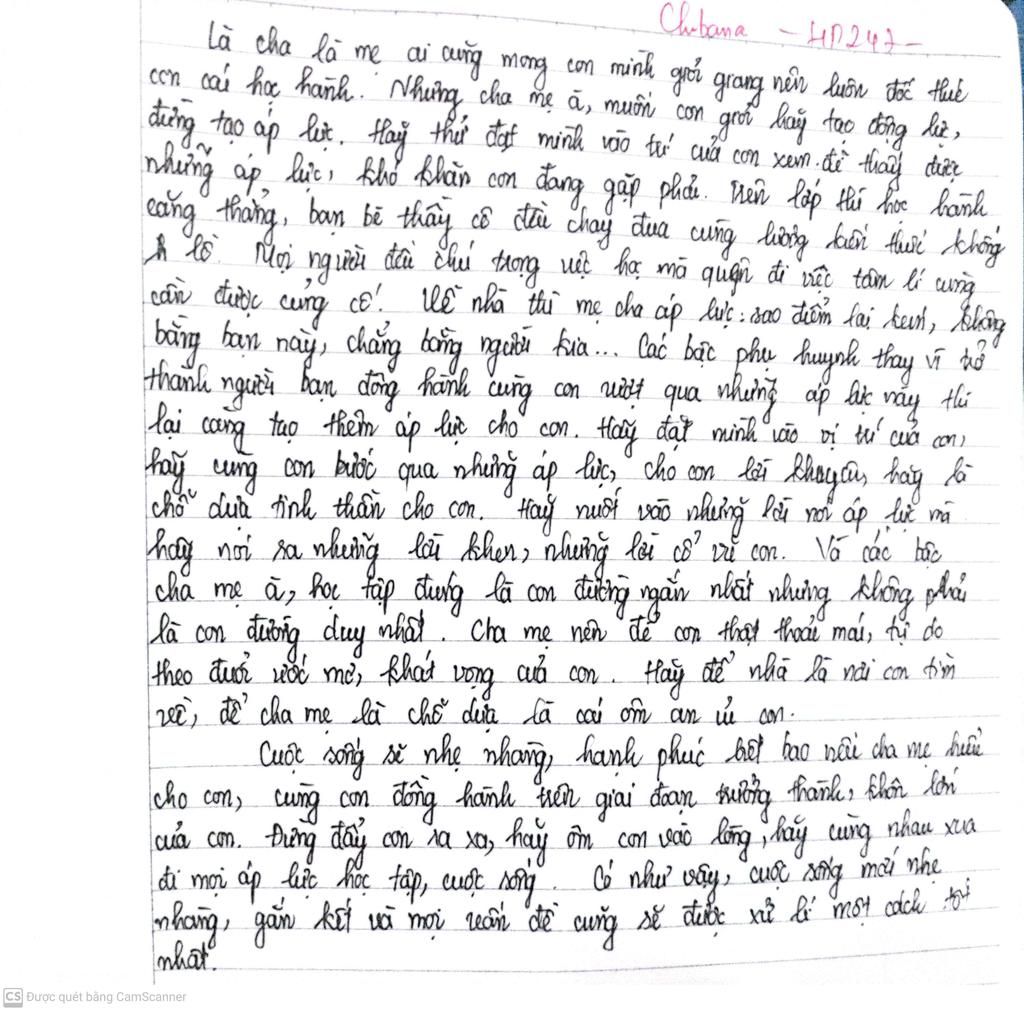 Chibana - HD247 -
Là cha là mẹ ai cũng mong con mình giỏi giang nên luôn đốc thúc
con cái học hành. Nhưng cha mẹ à, muốn con giỏi hãy tạo động lực,
đừng tạo áp lực. Hãy thử đặt mình vào trí của con xem để thấy được
những áp lực, khó khăn con đang gặp phải. Trên lớp thì học hành
căng thẳng, bạn bè thầy cô đều chạy đua cùng lượng kiến thức khổng
lồ. Mọi người đều chú trọng việc học mà quên đi việc tâm lí cũng
cần được củng cố! Về nhà thì mẹ cha áp lực: sao điểm lại kém, không
bằng bạn này, chẳng bằng người kia... Các bậc phụ huynh thay vì trở
thành người bạn đồng hành cùng con vượt qua những áp lực này thì
lại càng tạo thêm áp lực cho con. Hãy đặt mình vào vị trí của con,
hãy cùng con bước qua những áp lực, cho con lời khuyên, hãy là
chỗ dựa tinh thần cho con. Hãy nuốt vào những lời nói áp lực mà
hãy nói ra những lời khen, những lời cổ vũ con. Và các bậc
cha mẹ à, học tập đúng là con đường ngắn nhất nhưng không phải
là con đường duy nhất. Cha mẹ nên để con thật thoải mái, tự do
theo đuổi ước mơ, khát vọng của con. Hãy để nhà là nơi con tìm
về, để cha mẹ là chỗ dựa là cái ôm an ủi con.
Cuộc sống sẽ nhẹ nhàng, hạnh phúc biết bao nếu cha mẹ hiểu
cho con, cùng con đồng hành trên giai đoạn trưởng thành, khôn lớn
của con. Đừng đẩy con ra xa, hãy ôm con vào lòng, hãy cùng nhau xua
đi mọi áp lực học tập, cuộc sống. Có như vậy, cuộc sống mới nhẹ
nhàng, gắn kết và mọi vấn đề cũng sẽ được xử lí một cách tốt
nhất.
CS Được quét bằng CamScanner